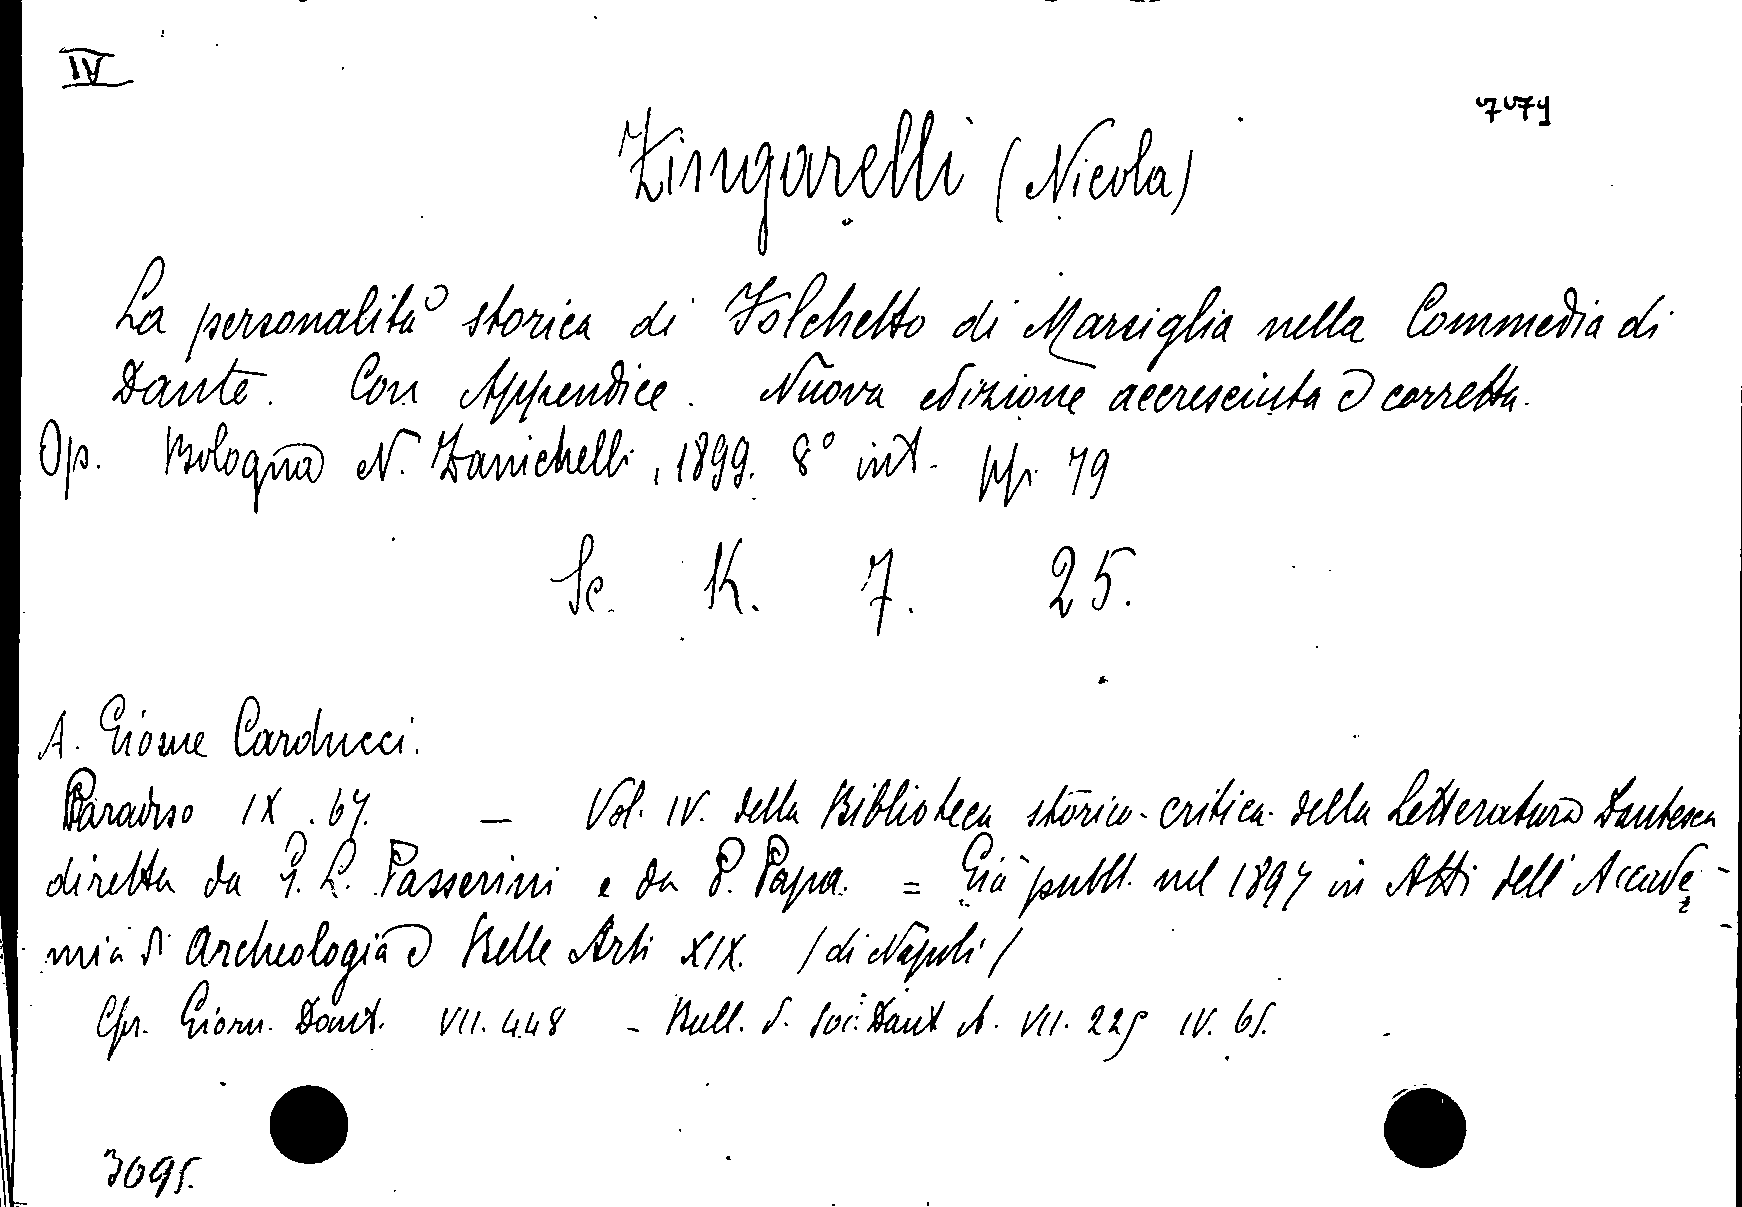 IV
7079
Zingarelli (Nicola)
La personalità storica di Folchetto di Marsiglia nella Commedia di
Dante. Con Appendice. Nuova edizione accresciuta e corretta.
Op. Bologna N. Zanichelli, 1899. 8° int. pp. 79
Sc. K. 7. 25.
A. Giosue Carducci.
Paradiso IX. 67. — Vol. IV. della Biblioteca storico-critica della Letteratura Dantesca
diretta da G. L. Passerini e da P. Papa. = Già pubbl. nel 1897 in Atti dell'Accade-
mia di Archeologia e Belle Arti XIX. (di Napoli)
Cfr. Giorn. Dant. VII. 448 - Bull. d. Soc. Dant. VII. 225 IV. 65.
3095.